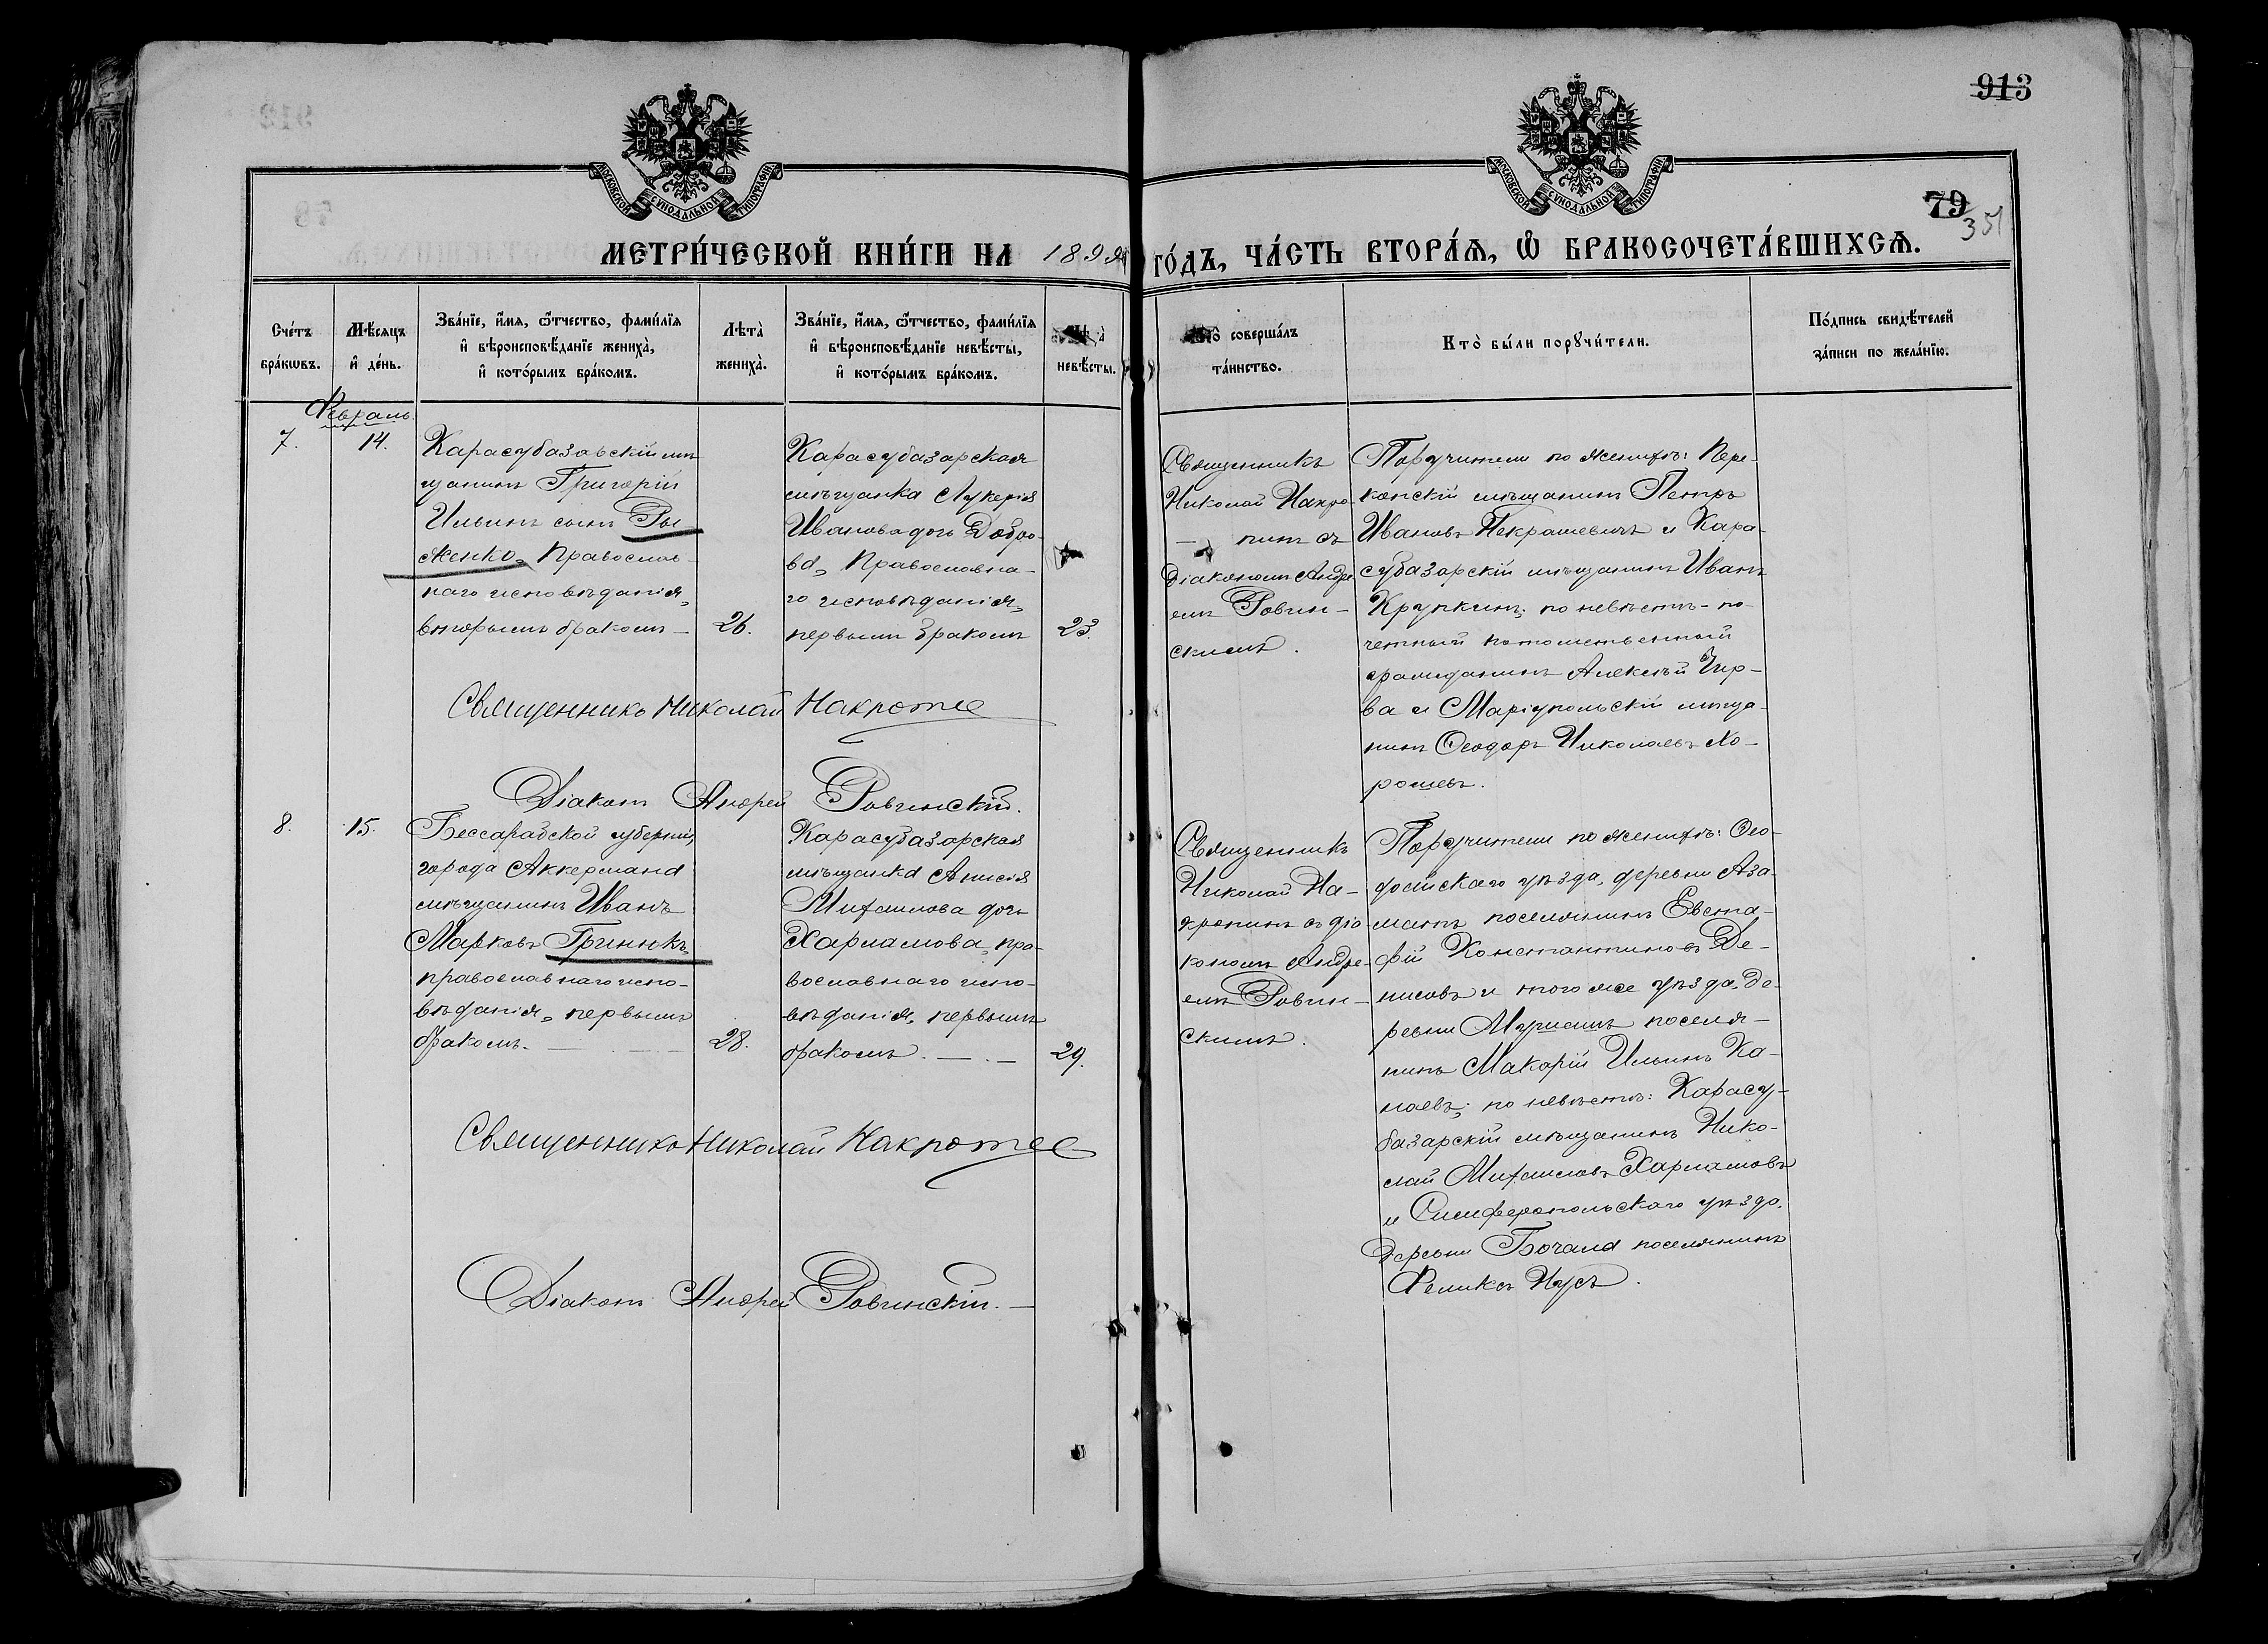 913
79
351
МОСКОВСКОЙ СѴНОДАЛЬНОЙ ТИПОГРАФІИ
МОСКОВСКОЙ СѴНОДАЛЬНОЙ ТИПОГРАФІИ
МЕТРИ́ЧЕСКОЙ КНИ́ГИ НА 1899 ГО́ДЪ, ЧА́СТЬ ВТОРА́Я, Ѽ БРАКОСОЧЕТА́ВШИХСѦ.
Сче́тъ
бра́кѡвъ.
Мѣ́сяцъ
и҆ де́нь.
Зва́нїе, и҆́мя, ѻ҆́тчество, фамі́лїя
и҆ вѣроисповѣ́данїе жениха̀,
и҆ кото́рымъ бра́комъ.
Лѣта̀
жениха̀.
Зва́нїе, и҆́мя, ѻ҆́тчество, фамі́лїя
и҆ вѣроисповѣ́данїе невѣ́сты,
и҆ кото́рымъ бра́комъ.
невѣ́сты.
соверша́лъ
та́инство.
Кто̀ бы́ли порꙋчи́тели.
По́дпись свидѣ́телей
за́писи по жела́нїю.
Февраль.
7.
14.
Карасубазарскій мѣ
щанинъ Григорій
Ильинъ сынъ Ры
женко, Православ-
наго исповѣданія,
вторымъ бракомъ —
26.
Карасубазарская
мѣщанка Лукерія
Иванова дочь Добро-
ва, Православна-
го исповѣданія,
первымъ бракомъ
23.
Священникъ
Николай Накро-
— пинъ съ
діакономъ Андре
емъ Ровин-
скимъ.
Поручители по женихѣ: Пере-
копскій мѣщанинъ Петръ
Ивановъ Некрашевичъ и Кара-
субазарскій мѣщанинъ Иванъ
Крупкинъ; по невѣстѣ - по-
четный потомственный
гражданинъ Алексѣй Чир-
ва и Маріупольскій мѣща-
нинъ Ѳеодоръ Николаевъ Хо-
рошевъ.
Священникъ Николай
Діаконъ Андрей Ровинскій.
8.
15.
Бессарабской губерніи,
города Аккермана
мѣщанинъ Иванъ
Марковъ Гринюкъ,
православнаго испо-
вѣданія, первымъ
бракомъ. —
28.
Карасубазарская
мѣщанка Анисія
Михаилова дочь
Харламова, пра-
вославнаго испо-
вѣданія, первымъ
бракомъ. — . —
29.
Священникъ
Николай На-
кропинъ съ діа
кономъ Андре-
емъ Ровин-
скимъ.
Поручители по женихѣ: Ѳео-
досійскаго уѣзда, деревни Аза-
матъ поселянинъ Евста-
фій Константиновъ Де-
нисовъ и того же уѣзда, де-
ревни поселя-
нинъ Макарій Ильинъ Ка-
наевъ; по невѣстѣ: Карасу-
базарскій мѣщанинъ Нико-
лай Михаиловъ Харламовъ
и Симферопольскаго уѣзда,
деревни Бочала поселянинъ
Феликсъ
Священникъ Николай
Діаконъ Андрей Ровинскій. —